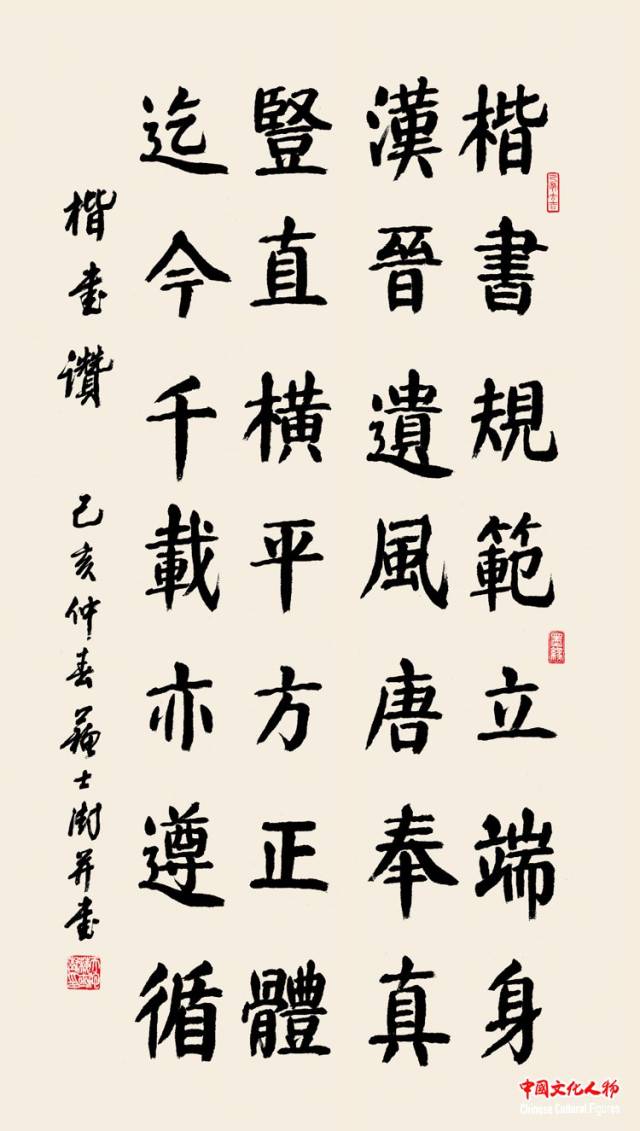 楷書規範立端身
漢晉遺風唐奉真
豎直橫平方正體
迄今千載亦遵循
楷書讚
己亥仲春蘇士澍并書
中國文化人物
Chinese Cultural Figures